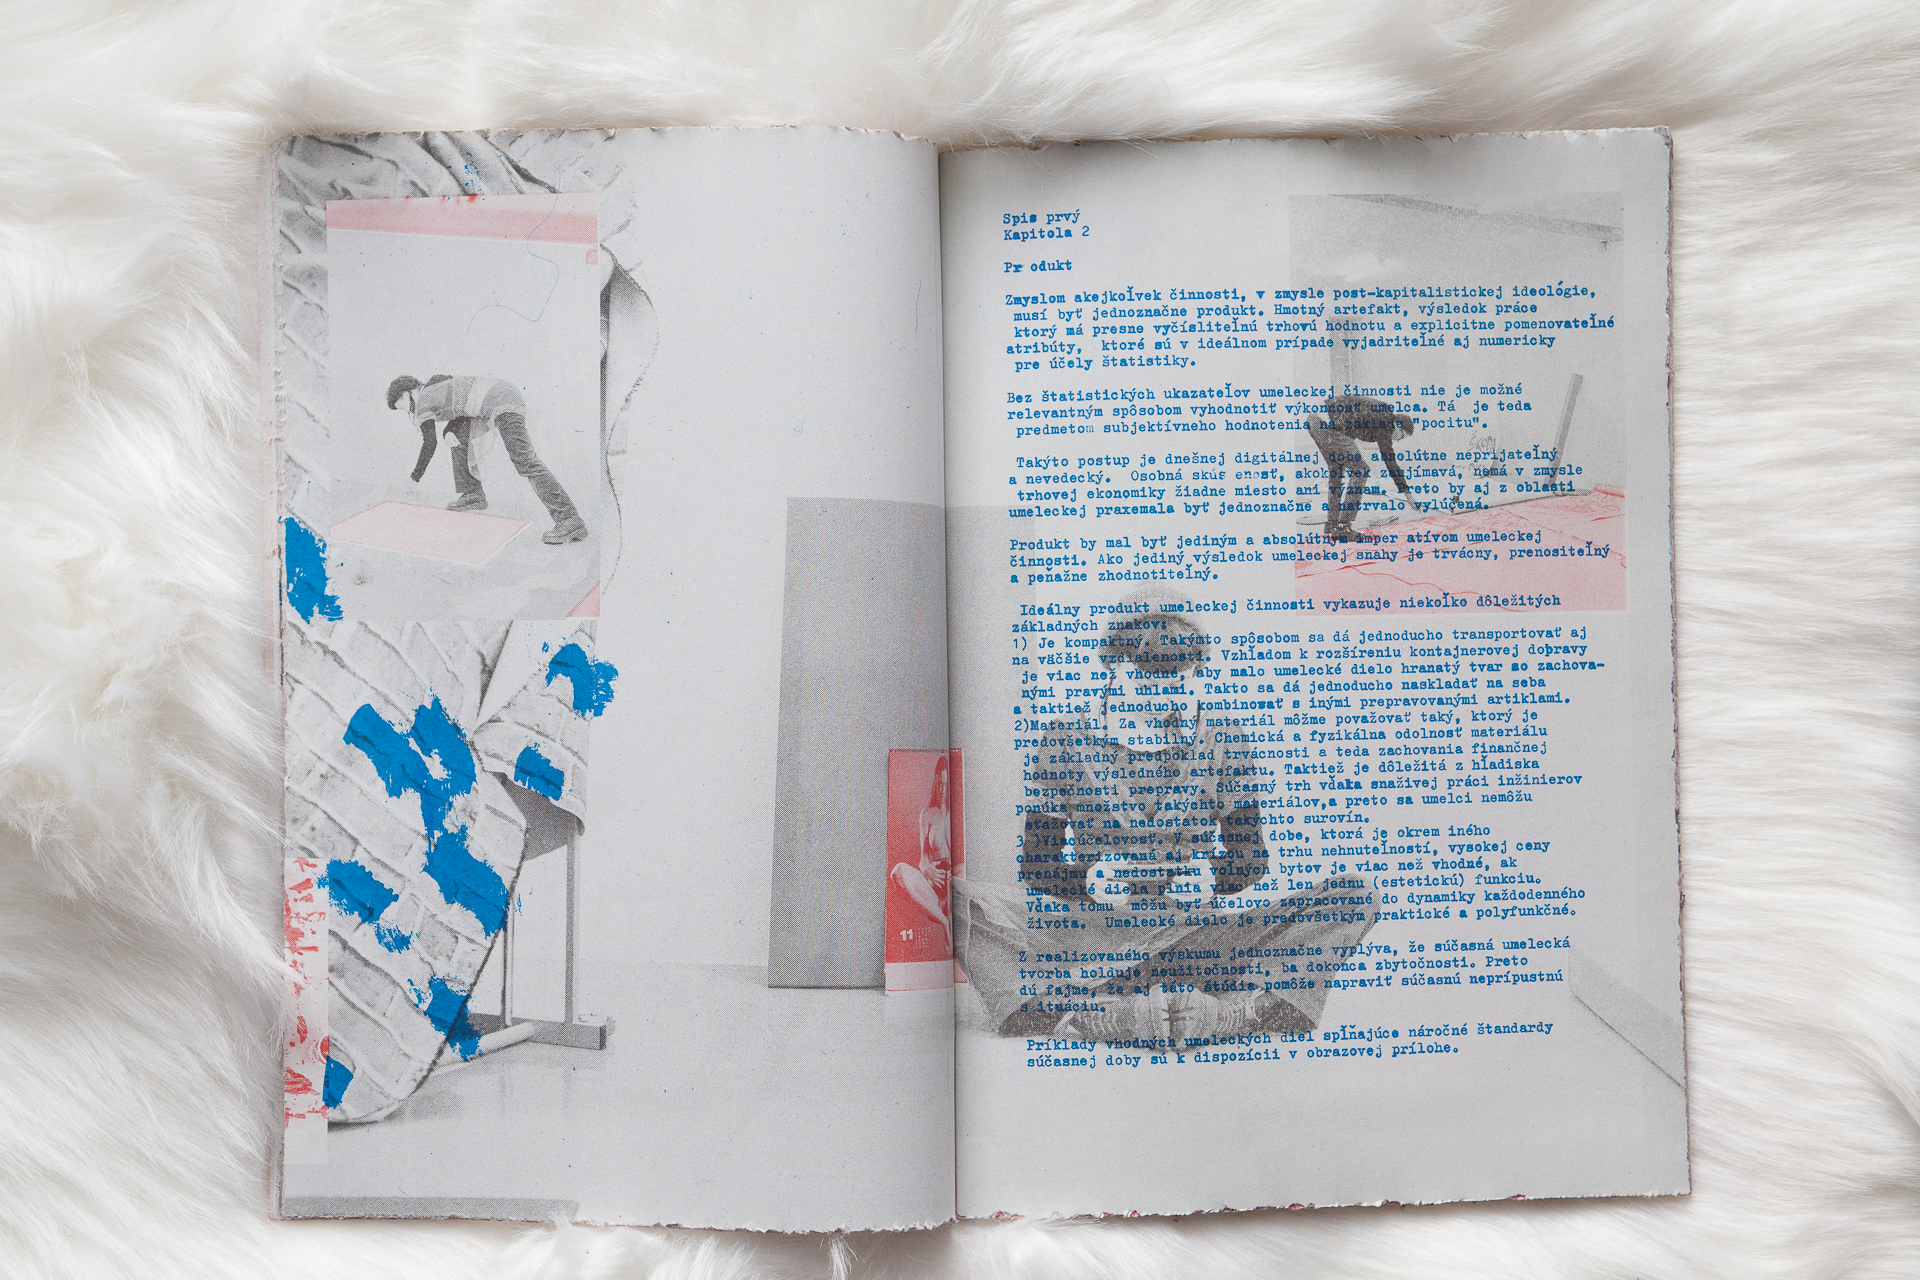 11
Spis prvý
Kapitola 2
Pr odukt
Zmyslom akejkoľvek činnosti, v zmysle post-kapitalistickej ideológie,
musí byť jednoznačne produkt. Hmotný artefakt, výsledok práce
ktorý má presne vyčísliteľnú trhovú hodnotu a explicitne pomenovateľné
atribúty, ktoré sú v ideálnom prípade vyjadriteľné aj numericky
pre účely štatistiky.
Bez štatistických ukazateľov umeleckej činnosti nie je možné
relevantným spôsobom vyhodnotiť výkonnosť umelca. Tá je teda
predmetom subjektívneho hodnotenia na základe "pocitu".
Takýto postup je dnešnej digitálnej dobe absolútne neprijateľný
a nevedecký. Osobná skús enosť, akokoľvek zaujímavá, nemá v zmysle
trhovej ekonomiky žiadne miesto ani význam. Preto by aj z oblasti
umeleckej praxemala byť jednoznačne a natrvalo vylúčená.
Produkt by mal byť jediným a absolútnym imper atívom umeleckej
činnosti. Ako jediný výsledok umeleckej snahy je trvácny, prenositeľný
a peňažne zhodnotiteľný.
Ideálny produkt umeleckej činnosti vykazuje niekoľko dôležitých
základných znakov:
1) Je kompaktný. Takýmto spôsobom sa dá jednoducho transportovať aj
na väčšie vzdialenosti. Vzhľadom k rozšíreniu kontajnerovej dopravy
je viac než vhodné, aby malo umelecké dielo hranatý tvar so zachova-
nými pravými uhlami. Takto sa dá jednoducho naskladať na seba
a taktiež jednoducho kombinovať s inými prepravovanými artiklami.
2)Materiál. Za vhodný materiál môžme považovať taký, ktorý je
predovšetkým stabilný. Chemická a fyzikálna odolnosť materiálu
je základný predpoklad trvácnosti a teda zachovania finančnej
hodnoty výsledného artefaktu. Taktiež je dôležitá z hľadiska
bezpečnosti prepravy. Súčasný trh vďaka snaživej práci inžinierov
ponúka množstvo takýchto materiálov,a preto sa umelci nemôžu
sťažovať na nedostatok takýchto surovín.
3 )Viacúčelovosť. V súčasnej dobe, ktorá je okrem iného
charakterizovaná aj krízou na trhu nehnuteľností, vysokej ceny
prenájmu a nedostatku voľných bytov je viac než vhodné, ak
umelecké diela plnia viac než len jednu (estetickú) funkciu.
Vďaka tomu môžu byť účelovo zapracované do dynamiky každodenného
života. Umelecké dielo je predovšetkým praktické a polyfunkčné.
Z realizovaného výskumu jednoznačne vyplýva, že súčasná umelecká
tvorba holduje neužitočnosti, ba dokonca zbytočnosti. Preto
dú fajme, že aj táto štúdia pomôže napraviť súčasnú neprípustnú
s ituáciu.
Príklady vhodných umeleckých diel spĺňajúce náročné štandardy
súčasnej doby sú k dispozícii v obrazovej prílohe.